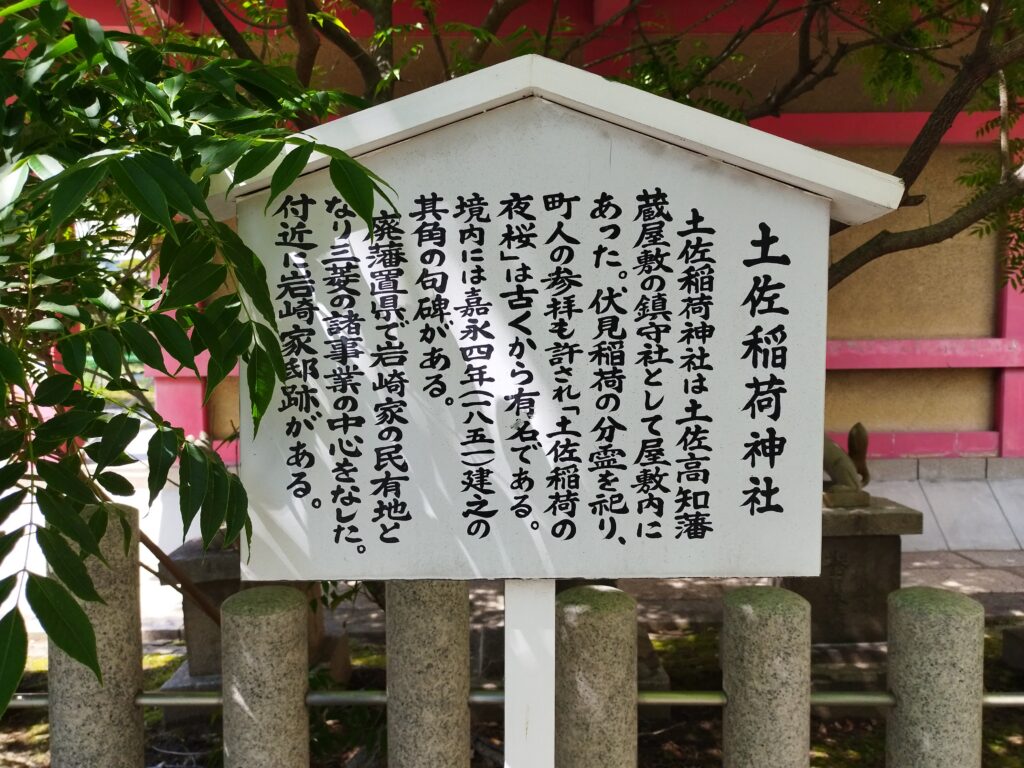 土佐稲荷神社
土佐稲荷神社は土佐高知藩
蔵屋敷の鎮守社として屋敷内に
あった。伏見稲荷の分霊を祀り、
町人の参拝も許され「土佐稲荷の
夜桜」は古くから有名である。
境内には嘉永四年(一八五一)建之の
其角の句碑がある。
廃藩置県で岩崎家の民有地と
なり三菱の諸事業の中心をなした。
付近に岩崎家邸跡がある。